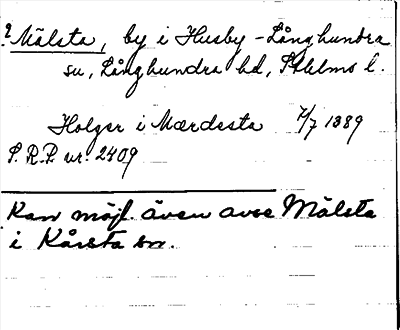 ? Mälsta, by i Husby-Långhundra
sn, Långhundra hd, Sthlms l.
Holger i Mærdesta 7/7 1389
S.R.P. nr. 2409
Kan möjl. även avse Målsta
i Kårsta sn.